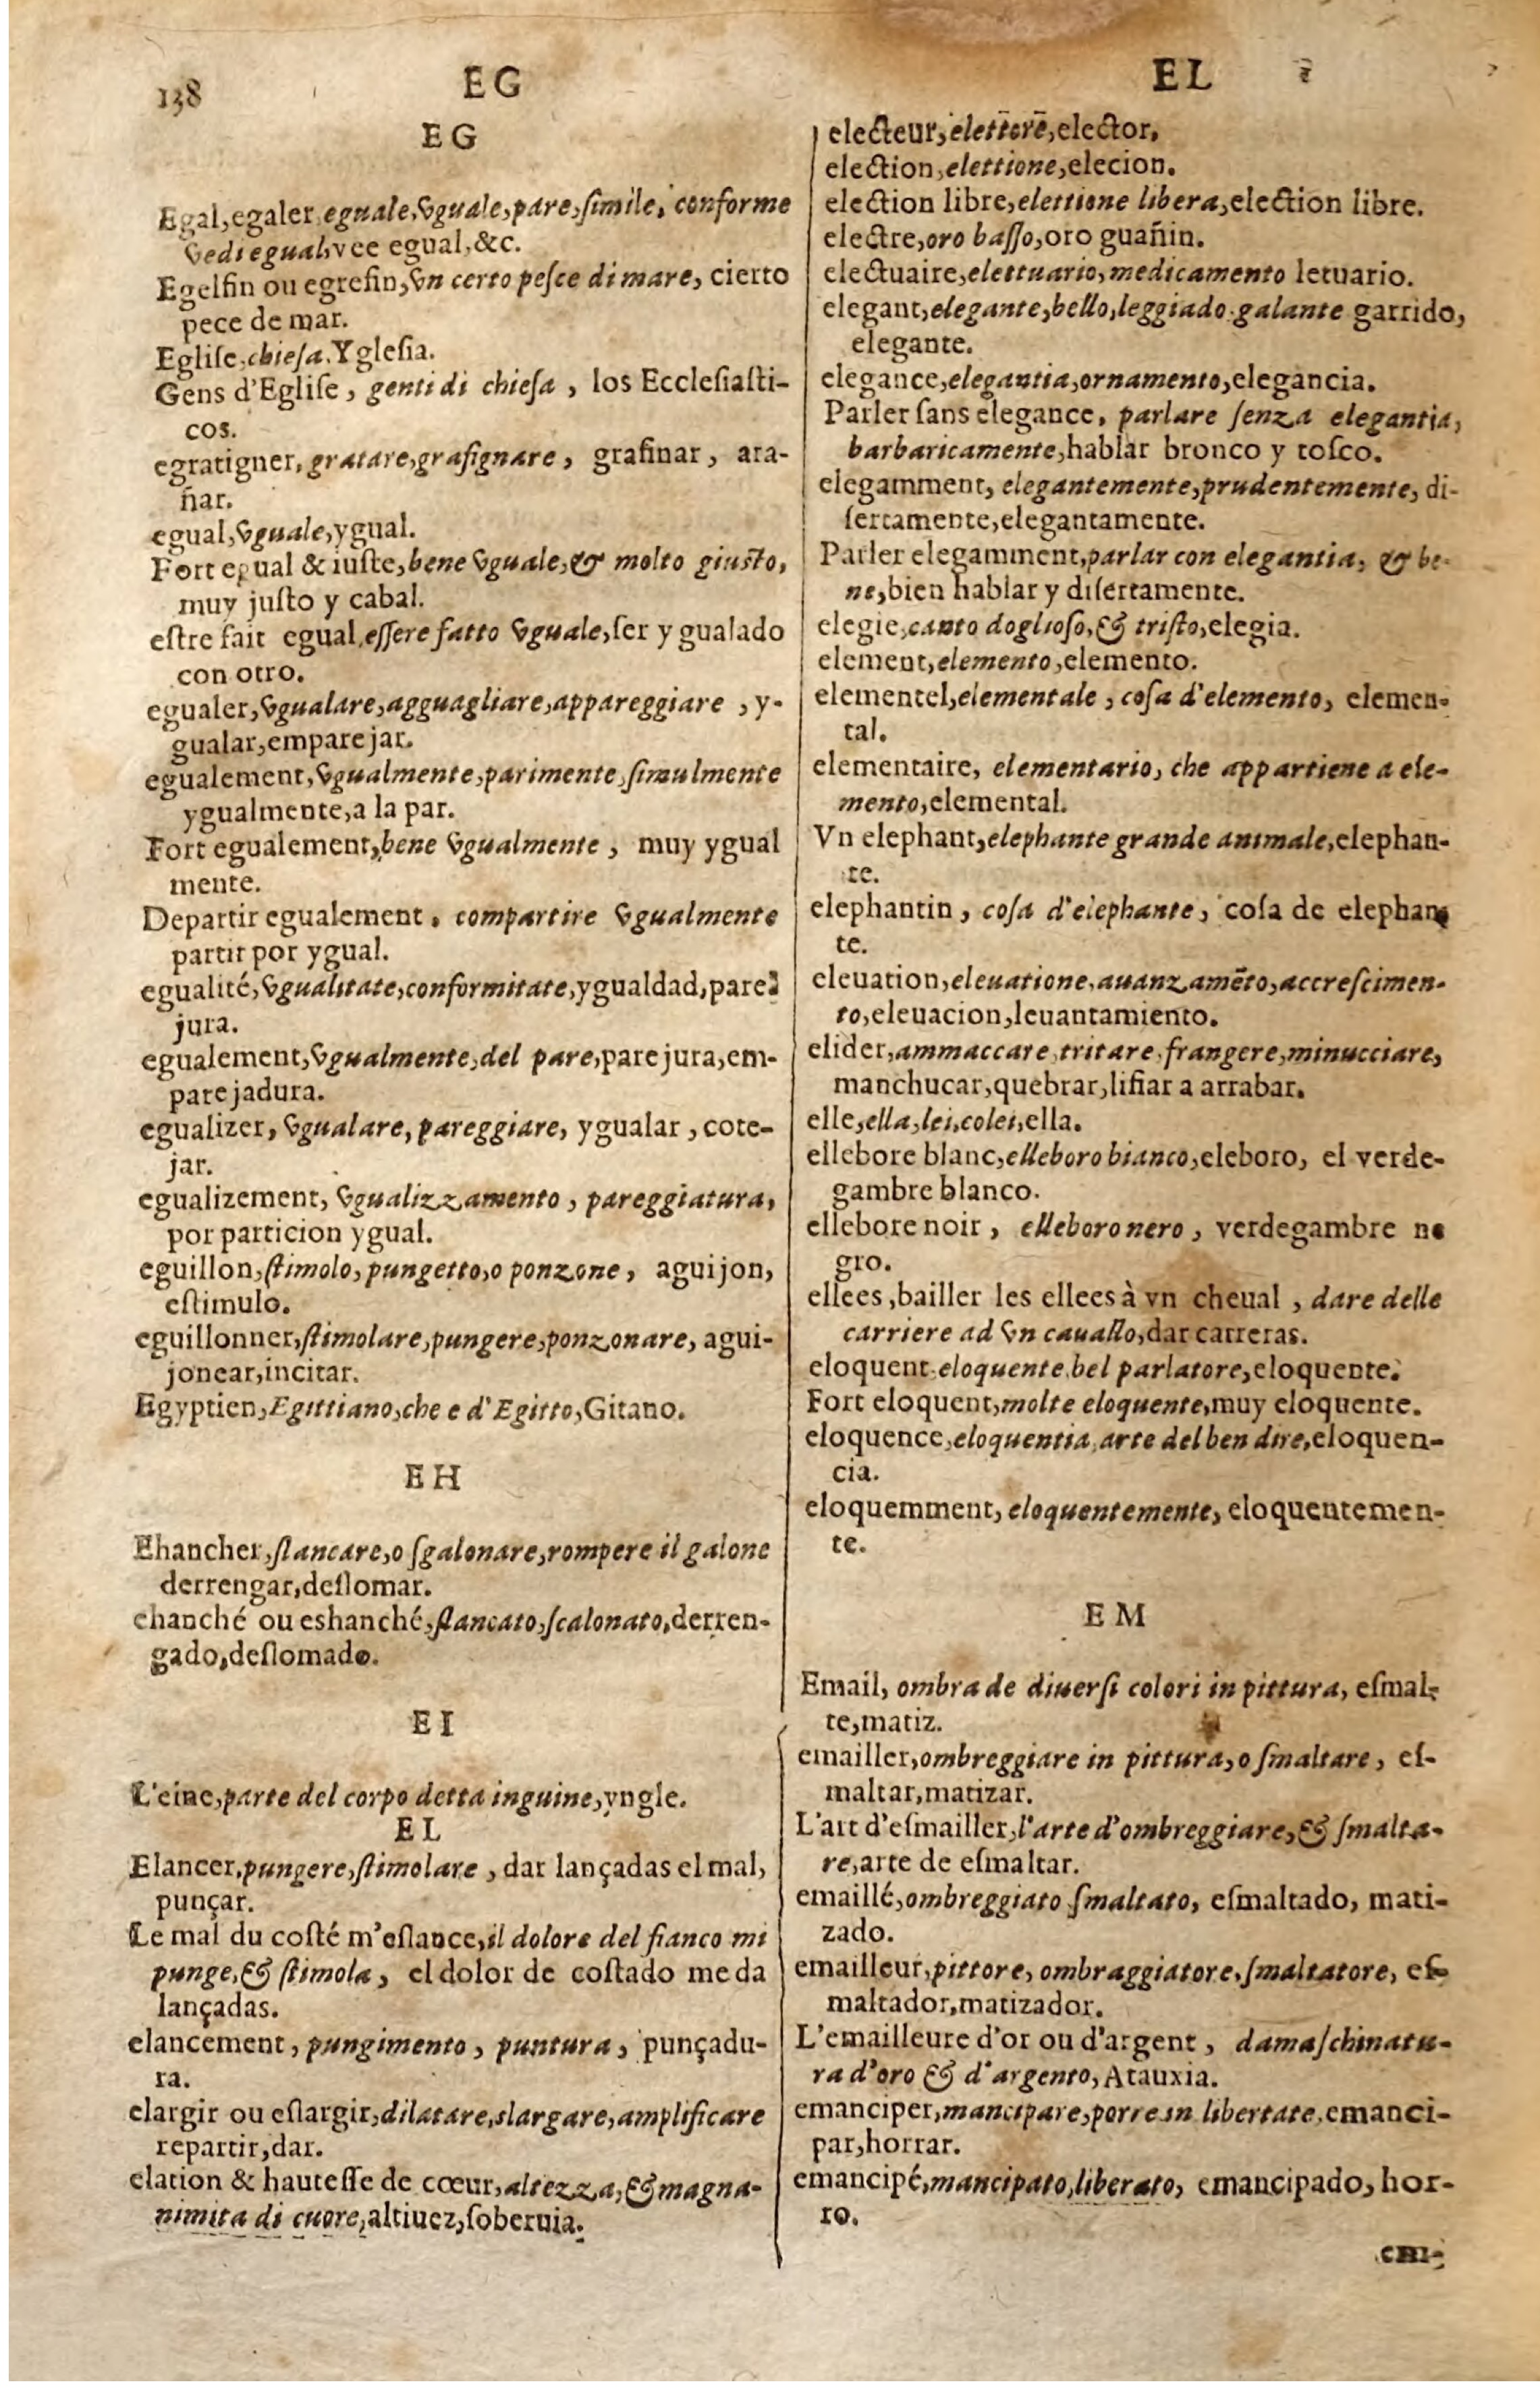 138
EG
EL
EG
Egal, egaler eguale, vguale, pare, ſimile, conforme
vedi egual, vee egual, &c.
Egelfin ou egrefin, vn certo peſce di mare, cierto
pece de mar.
Egliſe, chieſa, Ygleſia.
Gens d'Egliſe, genti di chieſa, los Eccleſiaſti-
cos.
egratigner, gratare, grafignare, grafinar, ara-
ñar.
egual, vguale, ygual.
Fort egual & iuſte, bene vguale, & molto giuſto,
muy juſto y cabal.
eſtre fait egual, eſſere fatto vguale, ſer ygualado
con otro.
egualer, vgualare, agguagliare, appareggiare, y-
gualar, emparejar.
egualement, vgualmente, parimente, ſimulmente
ygualmente, a la par.
Fort egualement, bene vgualmente, muy ygual
mente.
Departir egualement, compartire vgualmente
partir por ygual.
egualité, vgualitate, conformitate, ygualdad, pare-
jura.
egualement, vgualmente, del pare, parejura, em-
parejadura.
egualizer, vgualare, pareggiare, ygualar, cote-
jar.
egualizement, vgualizzamento, pareggiatura,
por particion ygual.
eguillon, ſtimolo, pungetto, o ponzone, aguijon,
eſtimulo.
eguillonner, ſtimolare, pungere, ponzonare, agui-
jonear, incitar.
Egyptien, Egittiano, che e d'Egitto, Gitano.
EH
Ehancher, ſlancare, o ſgalonare, rompere il galone
derrengar, deſlomar.
ehanché ou eshanché, ſlancato, ſcalonato, derren-
gado, deſlomado.
EI
L'eine, parte del corpo detta inguine, yngle.
EL
Elancer, pungere, ſtimolare, dar lançadas el mal,
punçar.
Le mal du coſté m'eſlance, il dolore del fianco mi
punge, & ſtimola, el dolor de coſtado me da
lançadas.
elancement, pungimento, puntura, punçadu-
ra.
elargir ou eſlargir, dilatare, slargare, amplificare
repartir, dar.
elation & hauteſſe de cœur, altezza, & magna-
nimita di cuore, altiuez, ſoberuia.
electeur, elettore, elector.
election, elettione, elecion.
election libre, elettione libera, election libre.
electre, oro baſſo, oro guañin.
electuaire, elettuario, medicamento letuario.
elegant, elegante, bello, leggiado galante garrido,
elegante.
elegance, elegantia, ornamento, elegancia.
Parler ſans elegance, parlare ſenza elegantia,
barbaricamente, hablar bronco y toſco.
elegamment, elegantemente, prudentemente, di-
ſertamente, elegantamente.
Parler elegamment, parlar con elegantia, & be-
ne, bien hablar y diſertamente.
elegie, canto doglioſo, & triſto, elegia.
element, elemento, elemento.
elementel, elementale, coſa d'elemento, elemen-
tal.
elementaire, elementario, che appartiene a ele-
mento, elemental.
Vn elephant, elephante grande animale, elephan-
te.
elephantin, coſa d'elephante, coſa de elephan-
te.
eleuation, eleuatione, auanzamẽto, accreſcimen-
to, eleuacion, leuantamiento.
elider, ammaccare, tritare, frangere, minucciare,
manchucar, quebrar, liſiar a arrabar.
elle, ella, lei, colei, ella.
ellebore blanc, elleboro bianco, eleboro, el verde-
gambre blanco.
ellebore noir, elleboro nero, verdegambre ne
gro.
ellees, bailler les ellees à vn cheual, dare delle
carriere ad vn cauallo, dar carreras.
eloquent, eloquente, bel parlatore, eloquente.
Fort eloquent, molte eloquente, muy eloquente.
eloquence, eloquentia, arte del ben dire, eloquen-
cia.
eloquemment, eloquentemente, eloquentemen-
te.
EM
Email, ombra de diuerſi colori in pittura, eſmal-
te, matiz.
emailler, ombreggiare in pittura, o ſmaltare, eſ-
maltar, matizar.
L'art d'eſmailler, l'arte d'ombreggiare, & ſmalta-
re, arte de eſmaltar.
emaillé, ombreggiato ſmaltato, eſmaltado, mati-
zado.
emailleur, pittore, ombraggiatore, ſmaltatore, eſ-
maltador, matizador.
L'emailleure d'or ou d'argent, damaſchinatu-
ra d'oro & d'argento, Atauxia.
emanciper, mancipare, porre in libertate, emanci-
par, horrar.
emancipé, mancipato, liberato, emancipado, hor-
ro.